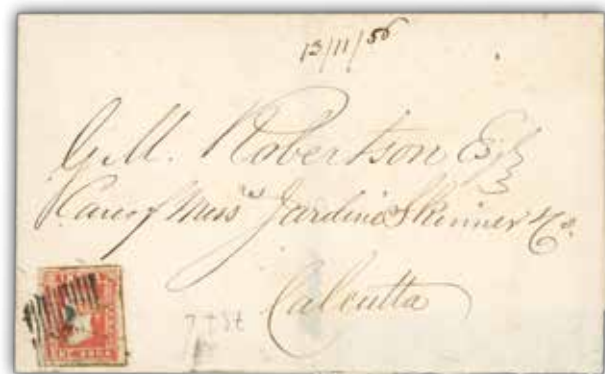 13/11/56
G. M. Robertson Esqr
Care of Messrs Jardine Skinner & Co.
Calcutta
ONE ANNA